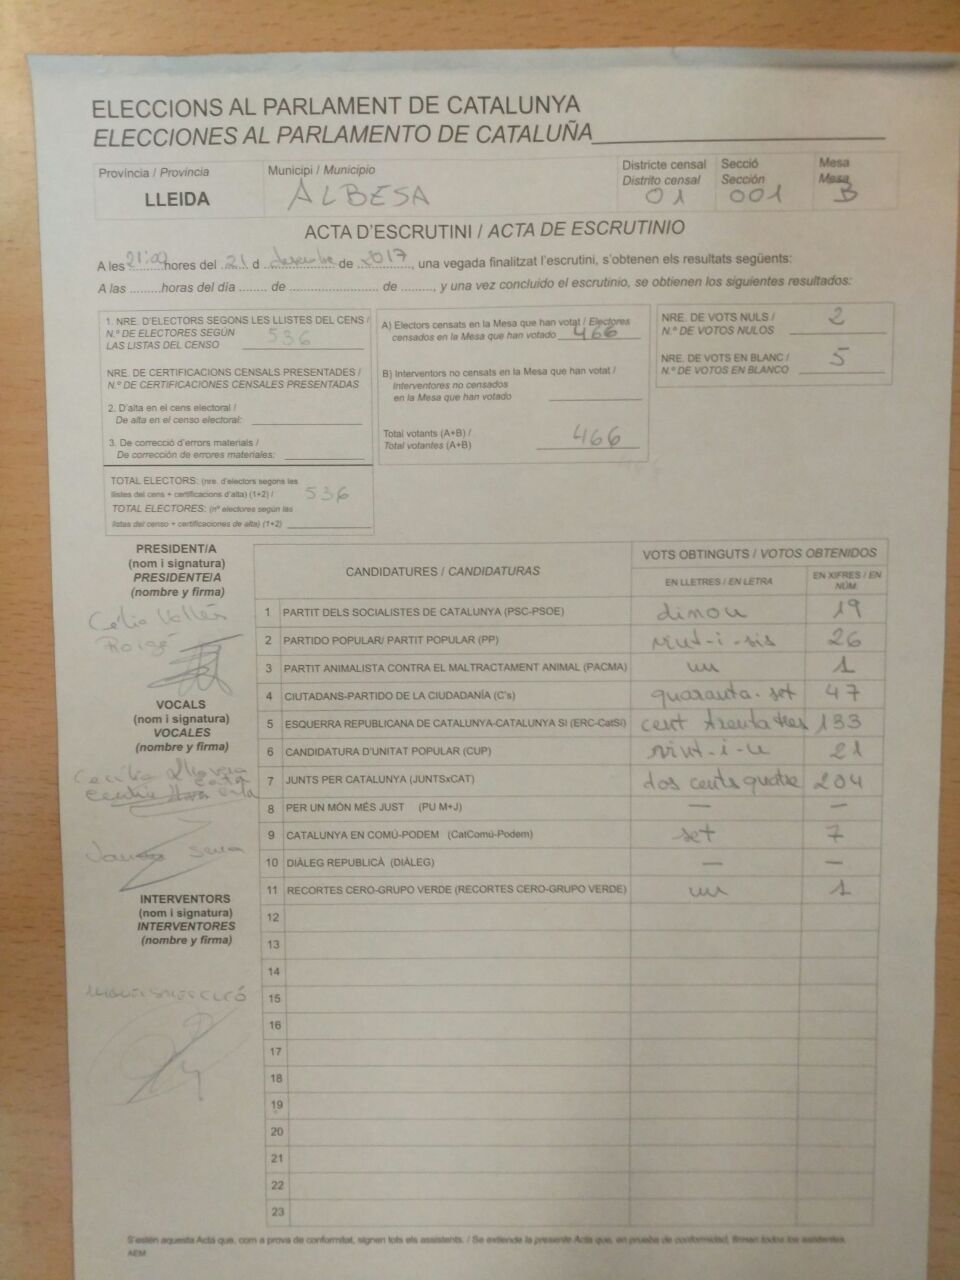 ELECCIONS AL PARLAMENT DE CATALUNYA
ELECCIONES AL PARLAMENTO DE CATALUÑA
Província / Provincia
LLEIDA
Municipi / Municipio
ALBESA
Districte censal
Distrito censal
01
Secció
Sección
001
Mesa
Mesa
B
ACTA D'ESCRUTINI / ACTA DE ESCRUTINIO
A les 21:00 hores del 21 d desembre de 2017, una vegada finalitzat l'escrutini, s'obtenen els resultats següents:
A las .........horas del día ....... de .............................. de ........, y una vez concluido el escrutinio, se obtienen los siguientes resultados:
1. NRE. D'ELECTORS SEGONS LES LLISTES DEL CENS /
N.º DE ELECTORES SEGÚN
LAS LISTAS DEL CENSO 536
NRE. DE CERTIFICACIONS CENSALS PRESENTADES /
N.º DE CERTIFICACIONES CENSALES PRESENTADAS
2. D'alta en el cens electoral /
De alta en el censo electoral:
3. De correcció d'errors materials /
De corrección de errores materiales:
TOTAL ELECTORS: (nre. d'electors segons les
llistes del cens + certificacions d'alta) (1+2) / 536
TOTAL ELECTORES: (nº electores según las
listas del censo + certificaciones de alta) (1+2)
A) Electors censats en la Mesa que han votat / Electores
censados en la Mesa que han votado 466
B) Interventors no censats en la Mesa que han votat /
Interventores no censados
en la Mesa que han votado
Total votants (A+B) /
Total votantes (A+B) 466
NRE. DE VOTS NULS /
N.º DE VOTOS NULOS 2
NRE. DE VOTS EN BLANC /
N.º DE VOTOS EN BLANCO 5
PRESIDENT/A
(nom i signatura)
PRESIDENTE/A
(nombre y firma)
Cèlia Vallés
Roigé
VOCALS
(nom i signatura)
VOCALES
(nombre y firma)
Cecília
INTERVENTORS
(nom i signatura)
INTERVENTORES
(nombre y firma)
CANDIDATURES / CANDIDATURAS
VOTS OBTINGUTS / VOTOS OBTENIDOS
EN LLETRES / EN LETRA
EN XIFRES / EN NÚM.
1 PARTIT DELS SOCIALISTES DE CATALUNYA (PSC-PSOE) dinou 19
2 PARTIDO POPULAR/ PARTIT POPULAR (PP) vint-i-sis 26
3 PARTIT ANIMALISTA CONTRA EL MALTRACTAMENT ANIMAL (PACMA) un 1
4 CIUTADANS-PARTIDO DE LA CIUDADANÍA (C's) quaranta-set 47
5 ESQUERRA REPUBLICANA DE CATALUNYA-CATALUNYA SÍ (ERC-CatSí) cent trenta tres 133
6 CANDIDATURA D'UNITAT POPULAR (CUP) vint-i-u 21
7 JUNTS PER CATALUNYA (JUNTSxCAT) dos cents quatre 204
8 PER UN MÓN MÉS JUST (PU M+J) — —
9 CATALUNYA EN COMÚ-PODEM (CatComú-Podem) set 7
10 DIÀLEG REPUBLICÀ (DIÀLEG) — —
11 RECORTES CERO-GRUPO VERDE (RECORTES CERO-GRUPO VERDE) un 1
12
13
14
15
16
17
18
19
20
21
22
23
S'estén aquesta Acta que, com a prova de conformitat, signen tots els assistents. / Se extiende la presente Acta que, en prueba de conformidad, firman todos los asistentes.
AEM